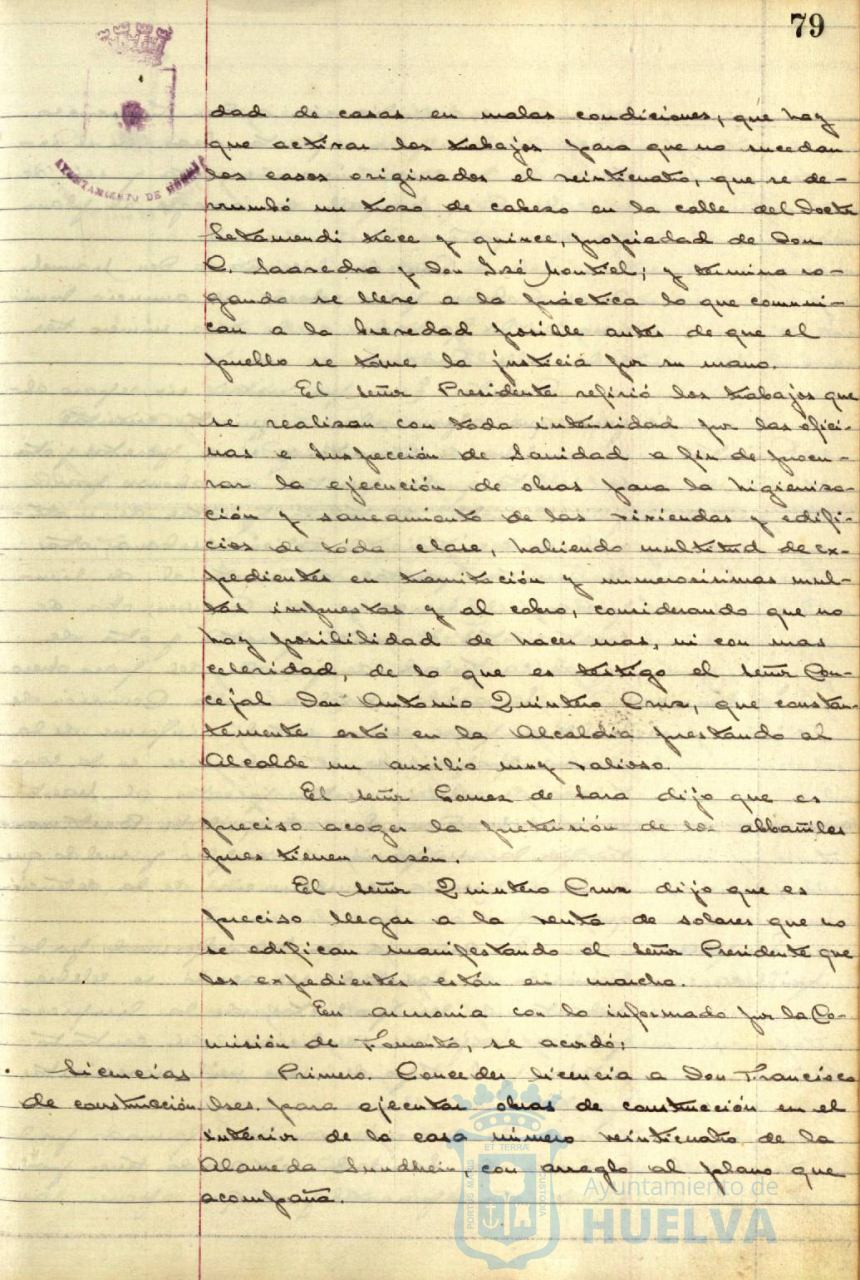 79
AYUNTAMIENTO DE HUELVA
dad de casas en malas condiciones, que hay
que activar los trabajos para que no sucedan
los casos originados el veinticuatro, que se de-
rrumbó un trozo de cabezo en la calle del Doctor
Letamendi trece y quince, propiedad de Don
C. Saavedra y Don José Montiel; y termina ro-
gando se lleve a la práctica lo que comuni-
can a la brevedad posible antes de que el
pueblo se tome la justicia por su mano.
El señor Presidente refirió los trabajos que
se realizan con toda intensidad por las ofici-
nas e Inspección de Sanidad a fin de procu-
rar la ejecución de obras para la higieniza-
ción y saneamiento de las viviendas y edifi-
cios de toda clase, habiendo multitud de ex-
pedientes en tramitación y numerosísimas mul-
tas impuestas y al cobro, considerando que no
hay posibilidad de hacer mas, ni con mas
celeridad, de lo que es testigo el señor Con-
cejal Don Antonio Quintero Cruz, que constan-
temente está en la Alcaldía prestando al
Alcalde un auxilio muy valioso.
El señor Gomez de Lara dijo que es
preciso acoger la pretensión de los albañiles
pues tienen razón.
El señor Quintero Cruz dijo que es
preciso llegar a la venta de solares que no
se edifican manifestando el señor Presidente que
los expedientes están en marcha.
En armonía con lo informado por la Co-
misión de Fomento, se acordó:
Licencias
de construcción
Primero. Conceder licencia a Don Francisco
para ejecutar obras de construcción en el
interior de la casa número veinticuatro de la
Alameda Sundheim, con arreglo al plano que
acompaña.
Ayuntamiento de
HUELVA